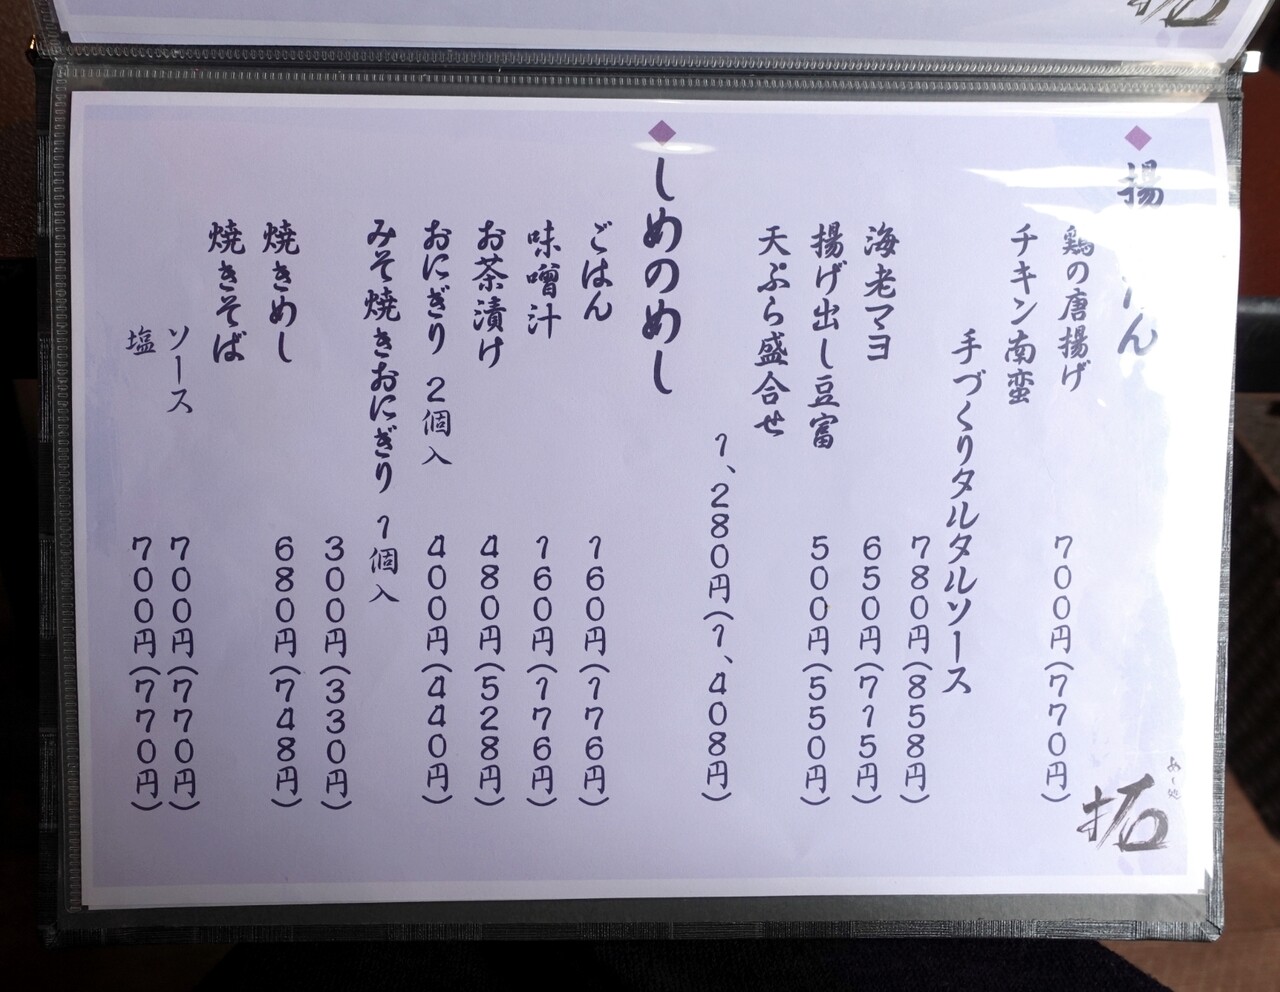 ◆揚
鶏の唐揚げ 700円(770円)
チキン南蛮
手づくりタルタルソース
780円(858円)
海老マヨ 650円(715円)
揚げ出し豆富 500円(550円)
天ぷら盛合せ
1、280円(1、408円)
◆しめのめし
ごはん 160円(176円)
味噌汁 160円(176円)
お茶漬け 480円(528円)
おにぎり 2個入 400円(440円)
みそ焼きおにぎり 1個入
300円(330円)
焼きめし 680円(748円)
焼きそば
ソース 700円(770円)
塩 700円(770円)
めし処
拓